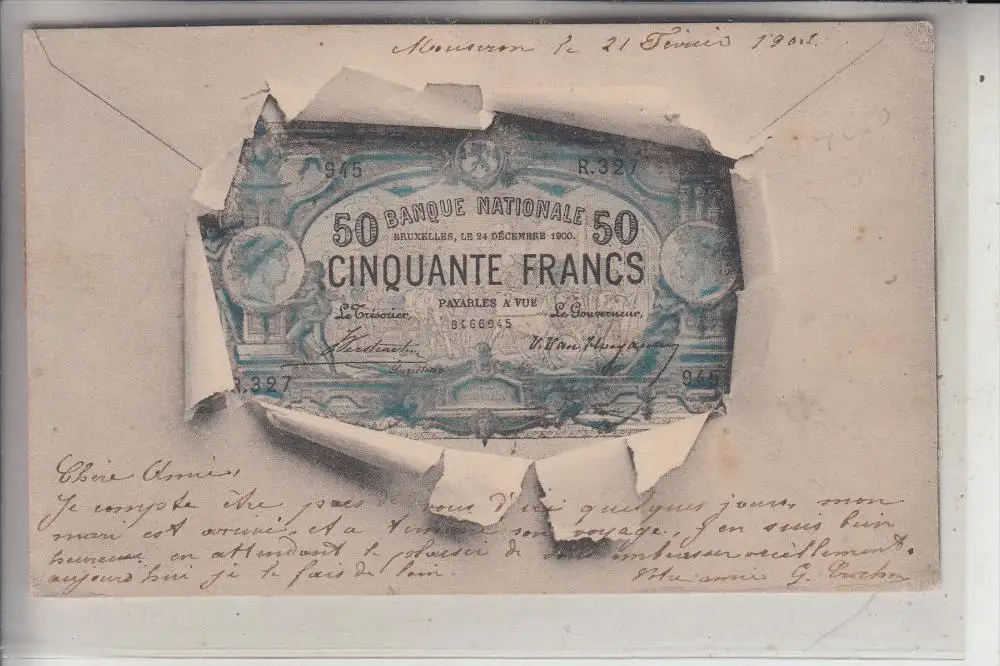 Mouscron le 21 Février 1901.
945 R.327
BANQUE NATIONALE
50 50
BRUXELLES, LE 24 DÉCEMBRE 1900.
CINQUANTE FRANCS
PAYABLES A VUE
Le Trésorier, Le Gouverneur,
8166945
R.327 945
Chère Amie,
Je compte être près de vous d'ici quelques jours, mon
mari est arrivé, et a terminé son voyage, j'en suis bien
heureuse. en attendant le plaisir de vous embrasser réellement.
aujourd'hui je le fais de loin. Votre amie G.